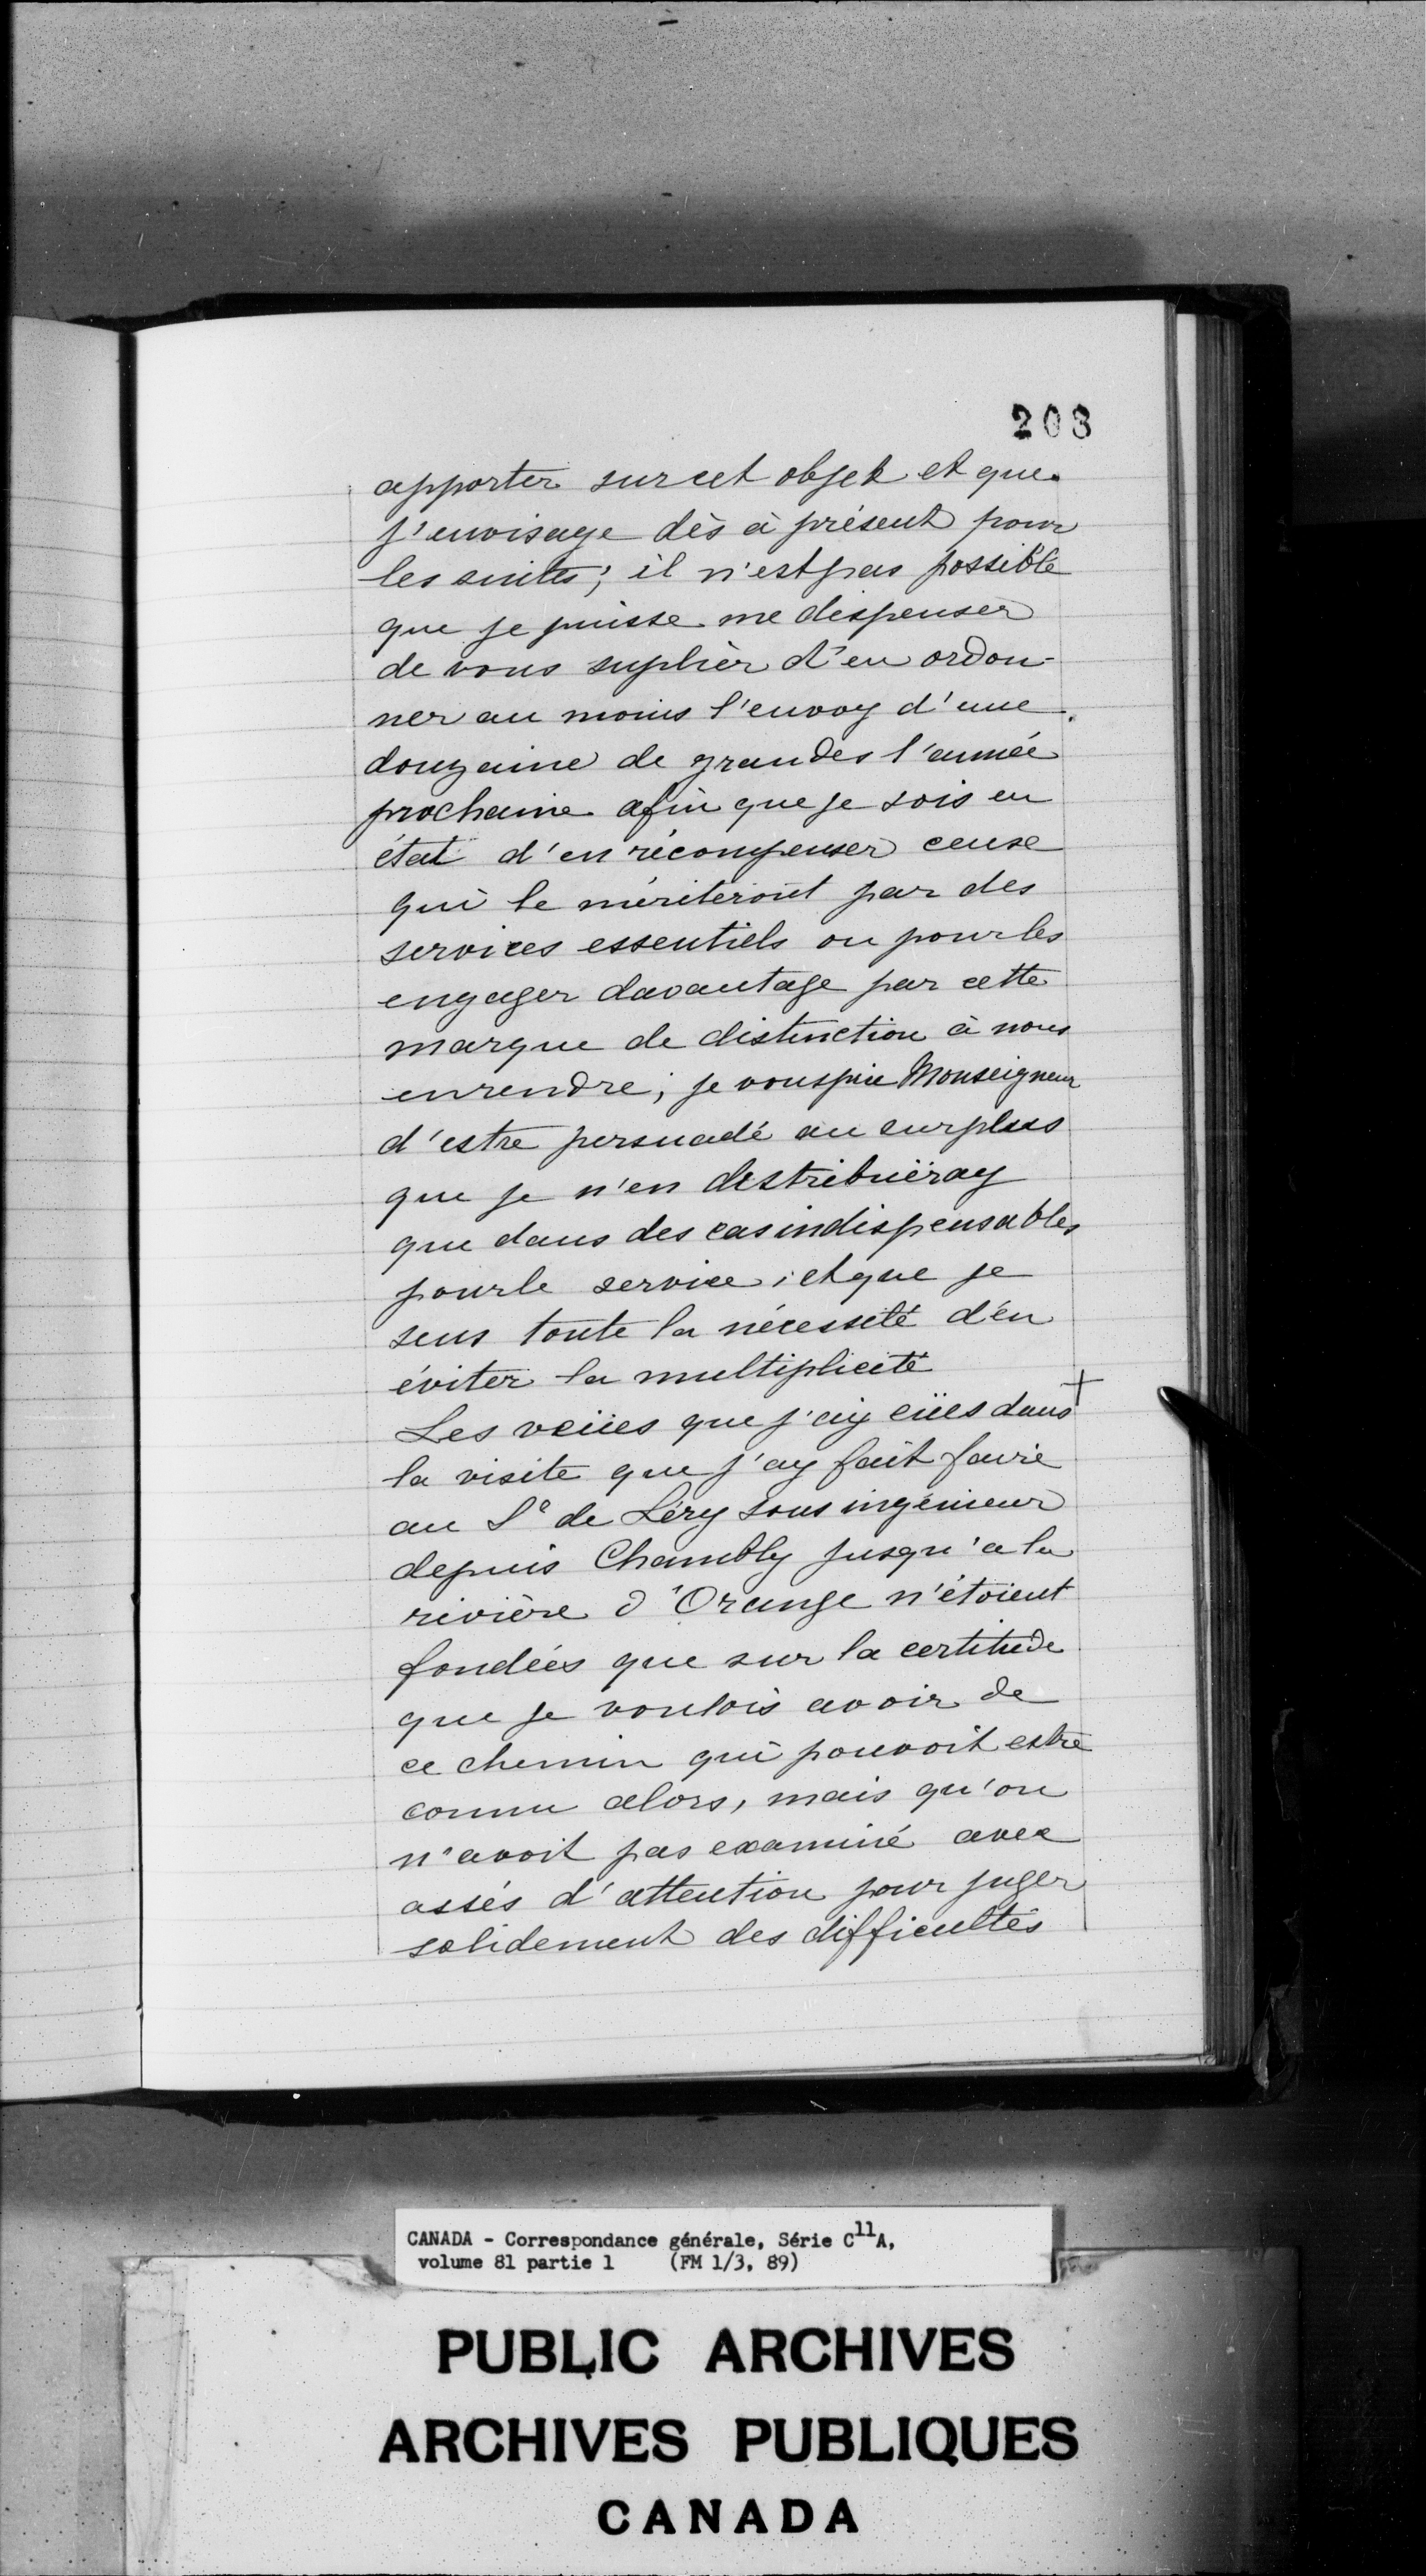 203
apporter sur cet objet et que
j'envisage dès à présent pour
les suites; il n'est pas possible
que je puisse me dispenser
de vous suplier d'en ordon-
ner au moins l'envoy d'une
douzaine de grandes l'année
prochaine afin que je sois en
état d'en récompenser ceuse
qui le mériteront par des
services essentiels ou pour les
engager davantage par cette
marque de distinction à nous
en rendre; je vous prie Monseigneur
d'estre persuadé au surplus
que je n'en distribuëray
que dans des cas indispensables
pour le service; et que je
sens toute la nécessité d'en
éviter la multiplicité
+
Les veües que j'ay eües dans
la visite que j'ay fait faire
au Sr de Léry sous ingénieur
depuis Chambly jusqu'a la
rivière d'Orange n'étoient
fondées que sur la certitude
que je voulois avoir de
ce chemin qui pouvoit estre
connu alors, mais qu'on
n'avoit pas examiné avec
assés d'attention pour juger
solidement des difficultés
CANADA - Correspondance générale, Série C11A,
volume 81 partie 1 (FM 1/3, 89)
PUBLIC ARCHIVES
ARCHIVES PUBLIQUES
CANADA